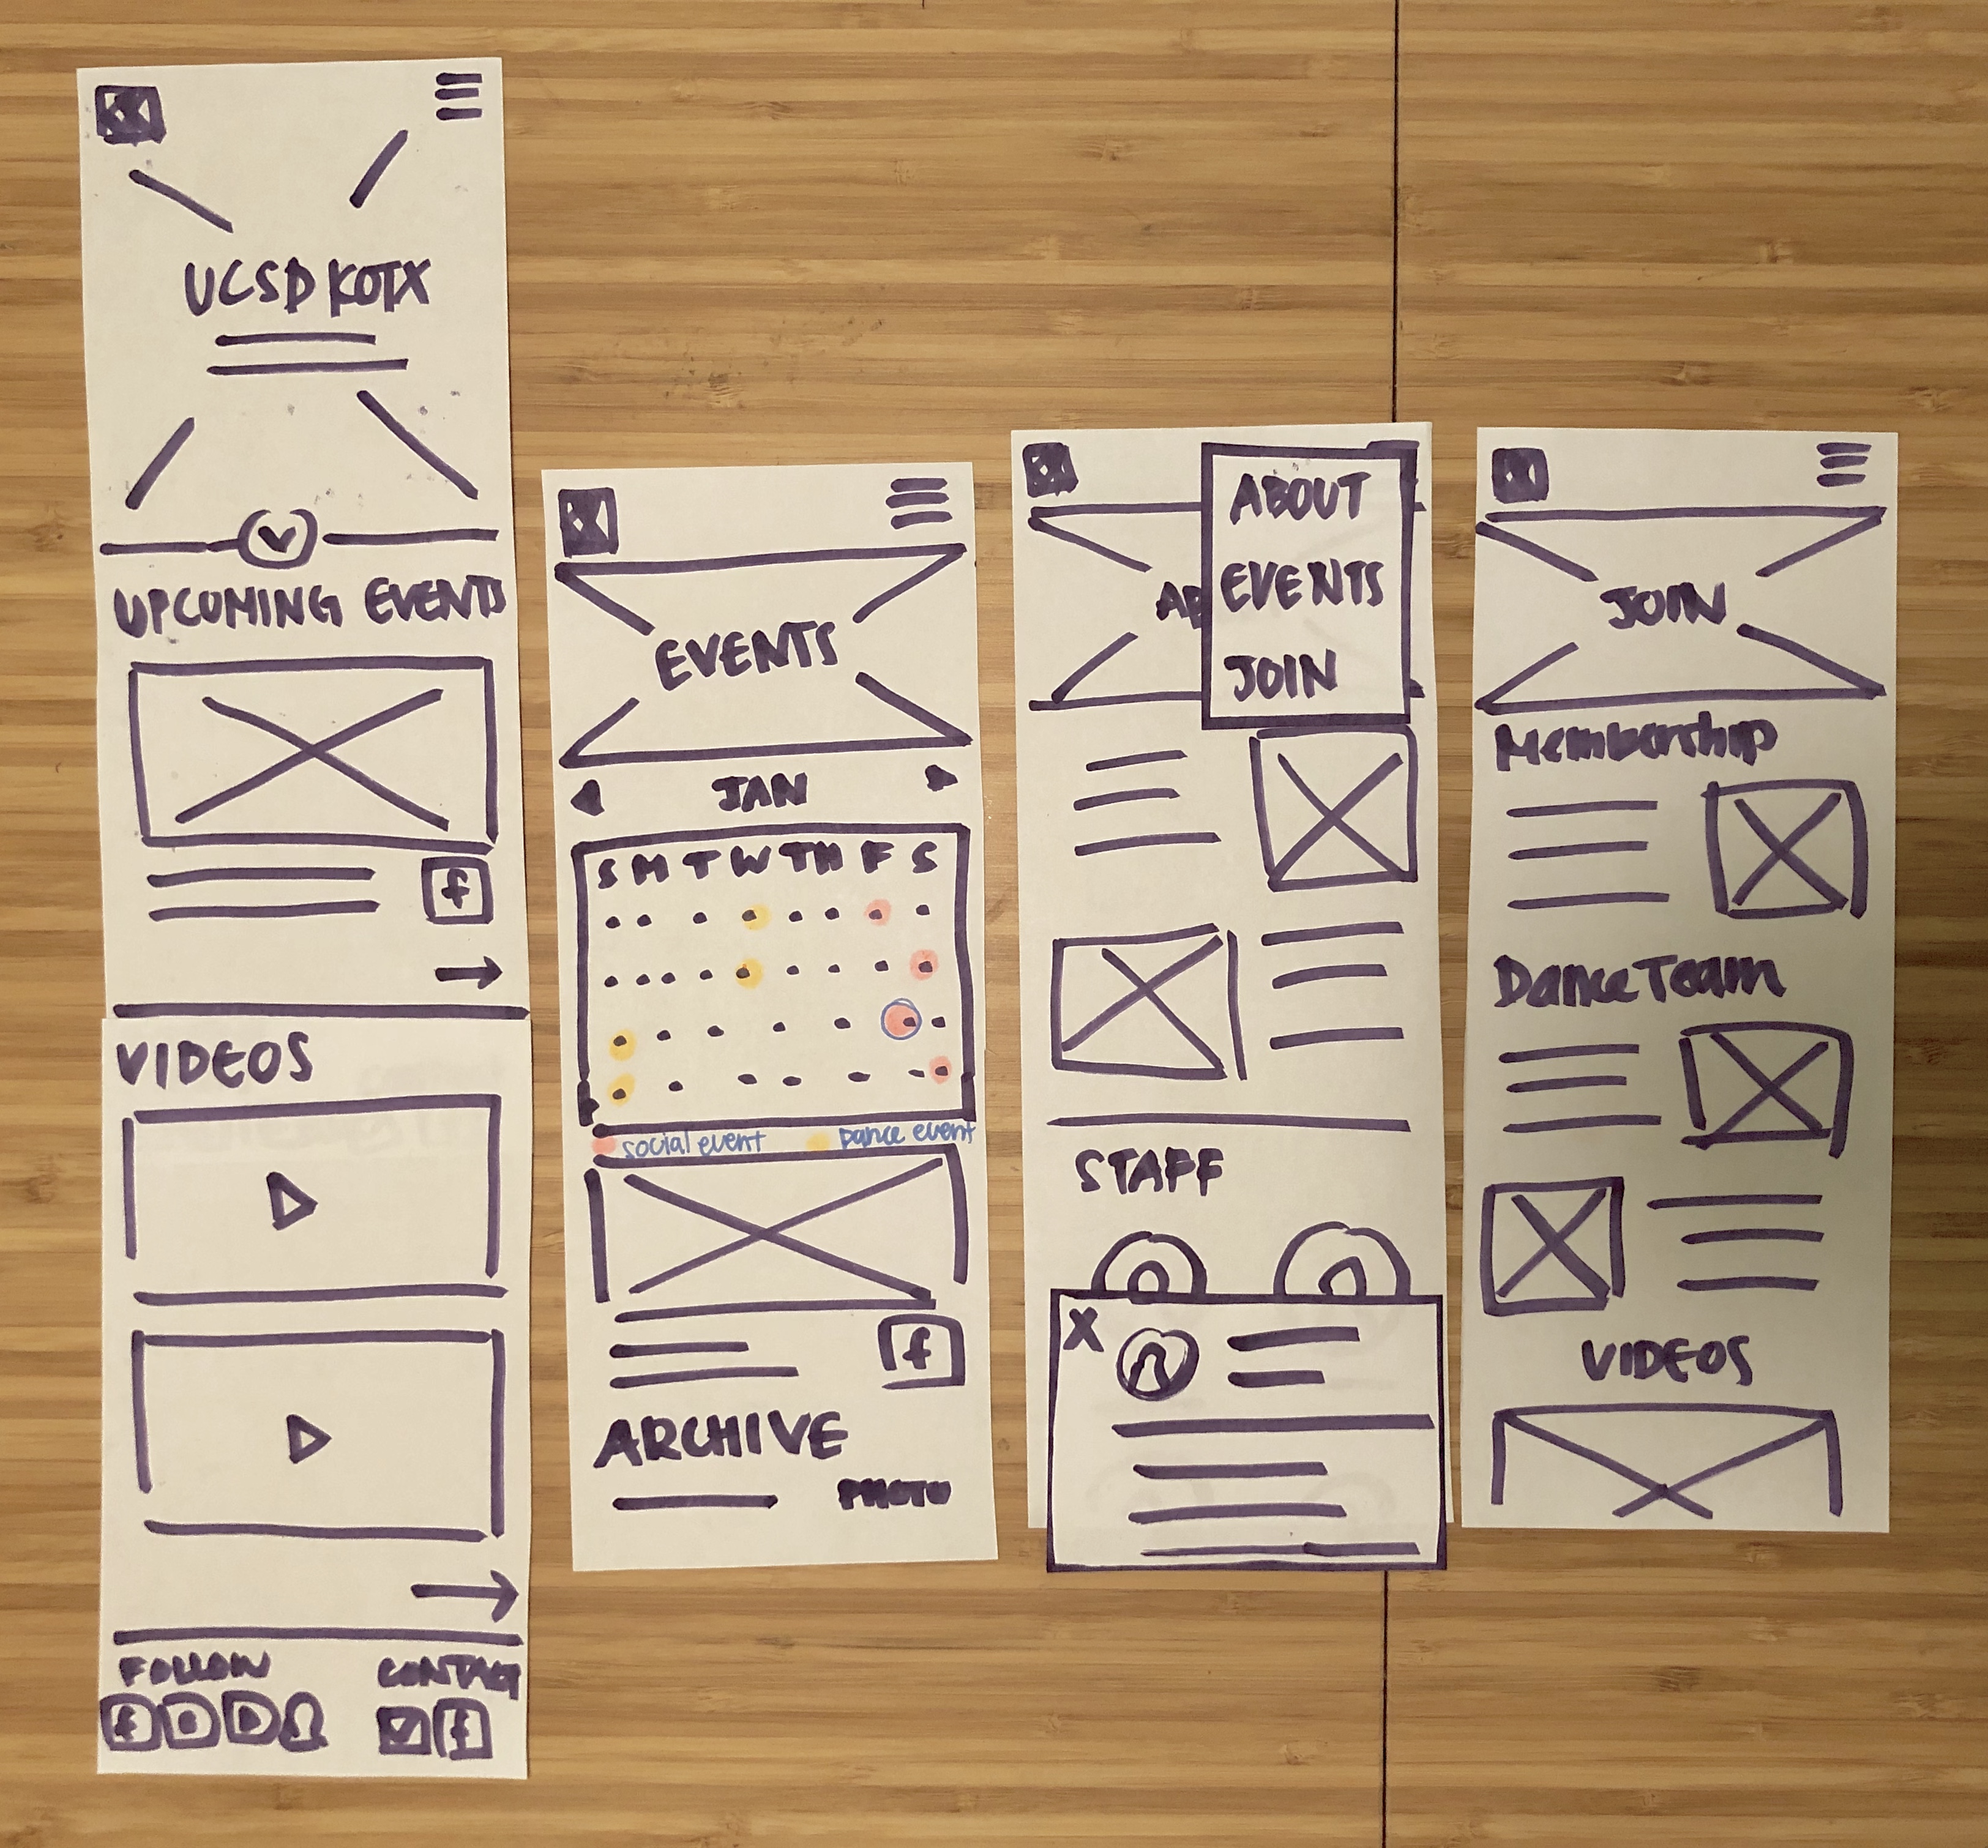 UCSD KOTX
UPCOMING EVENTS
f
VIDEOS
FOLLOW
CONTACT
f
f
EVENTS
JAN
S M T W TH F S
social event
Dance event
f
ARCHIVE
PHOTO
ABOUT
EVENTS
JOIN
AB
STAFF
X
JOIN
Membership
Dance Team
VIDEOS